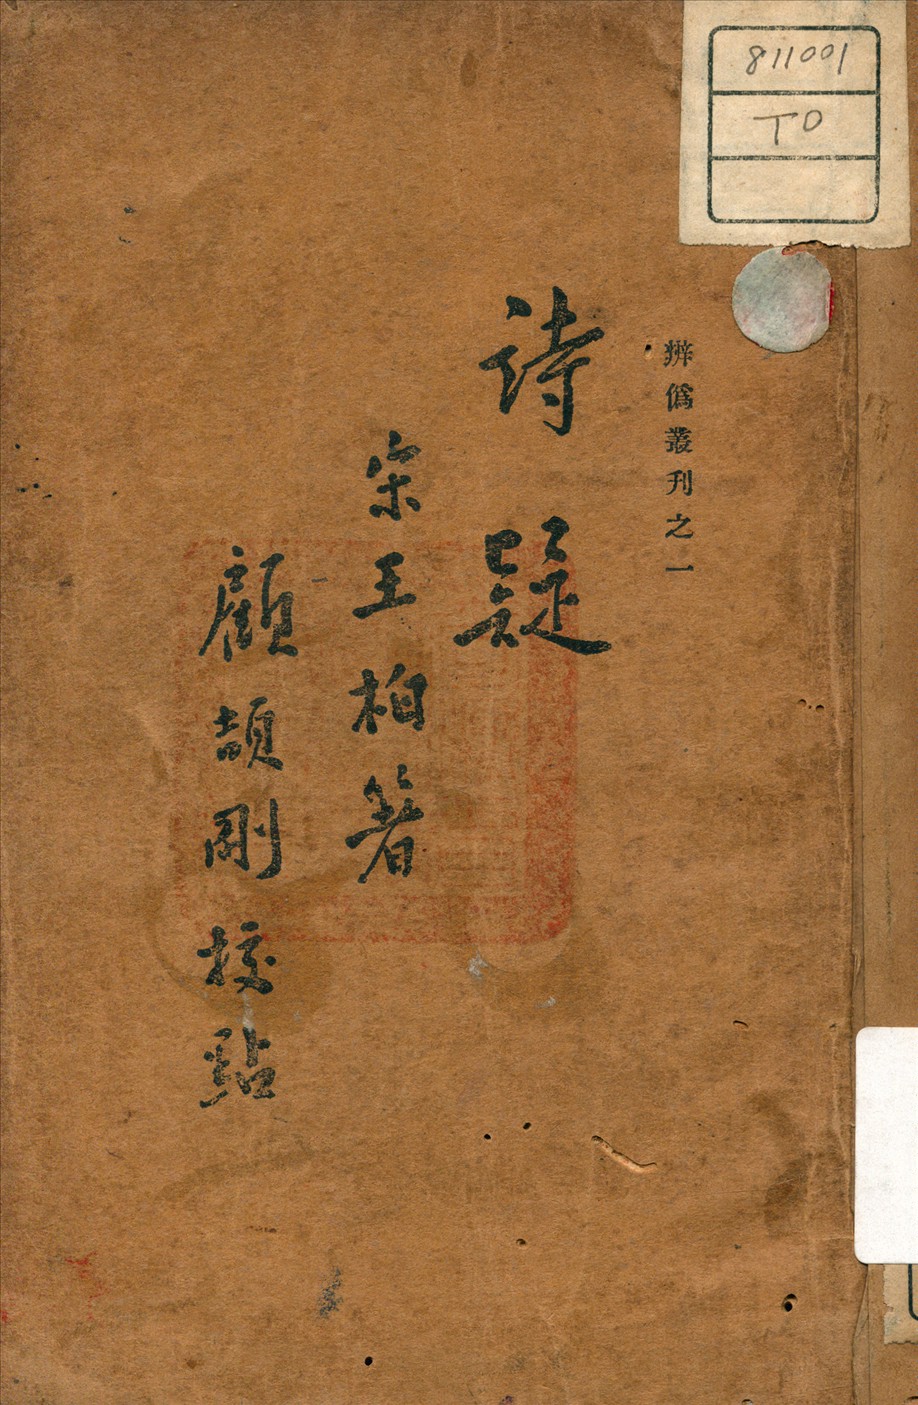 811001
TO
辨偽叢刊之一
詩疑
宋王柏著
顧頡剛校點